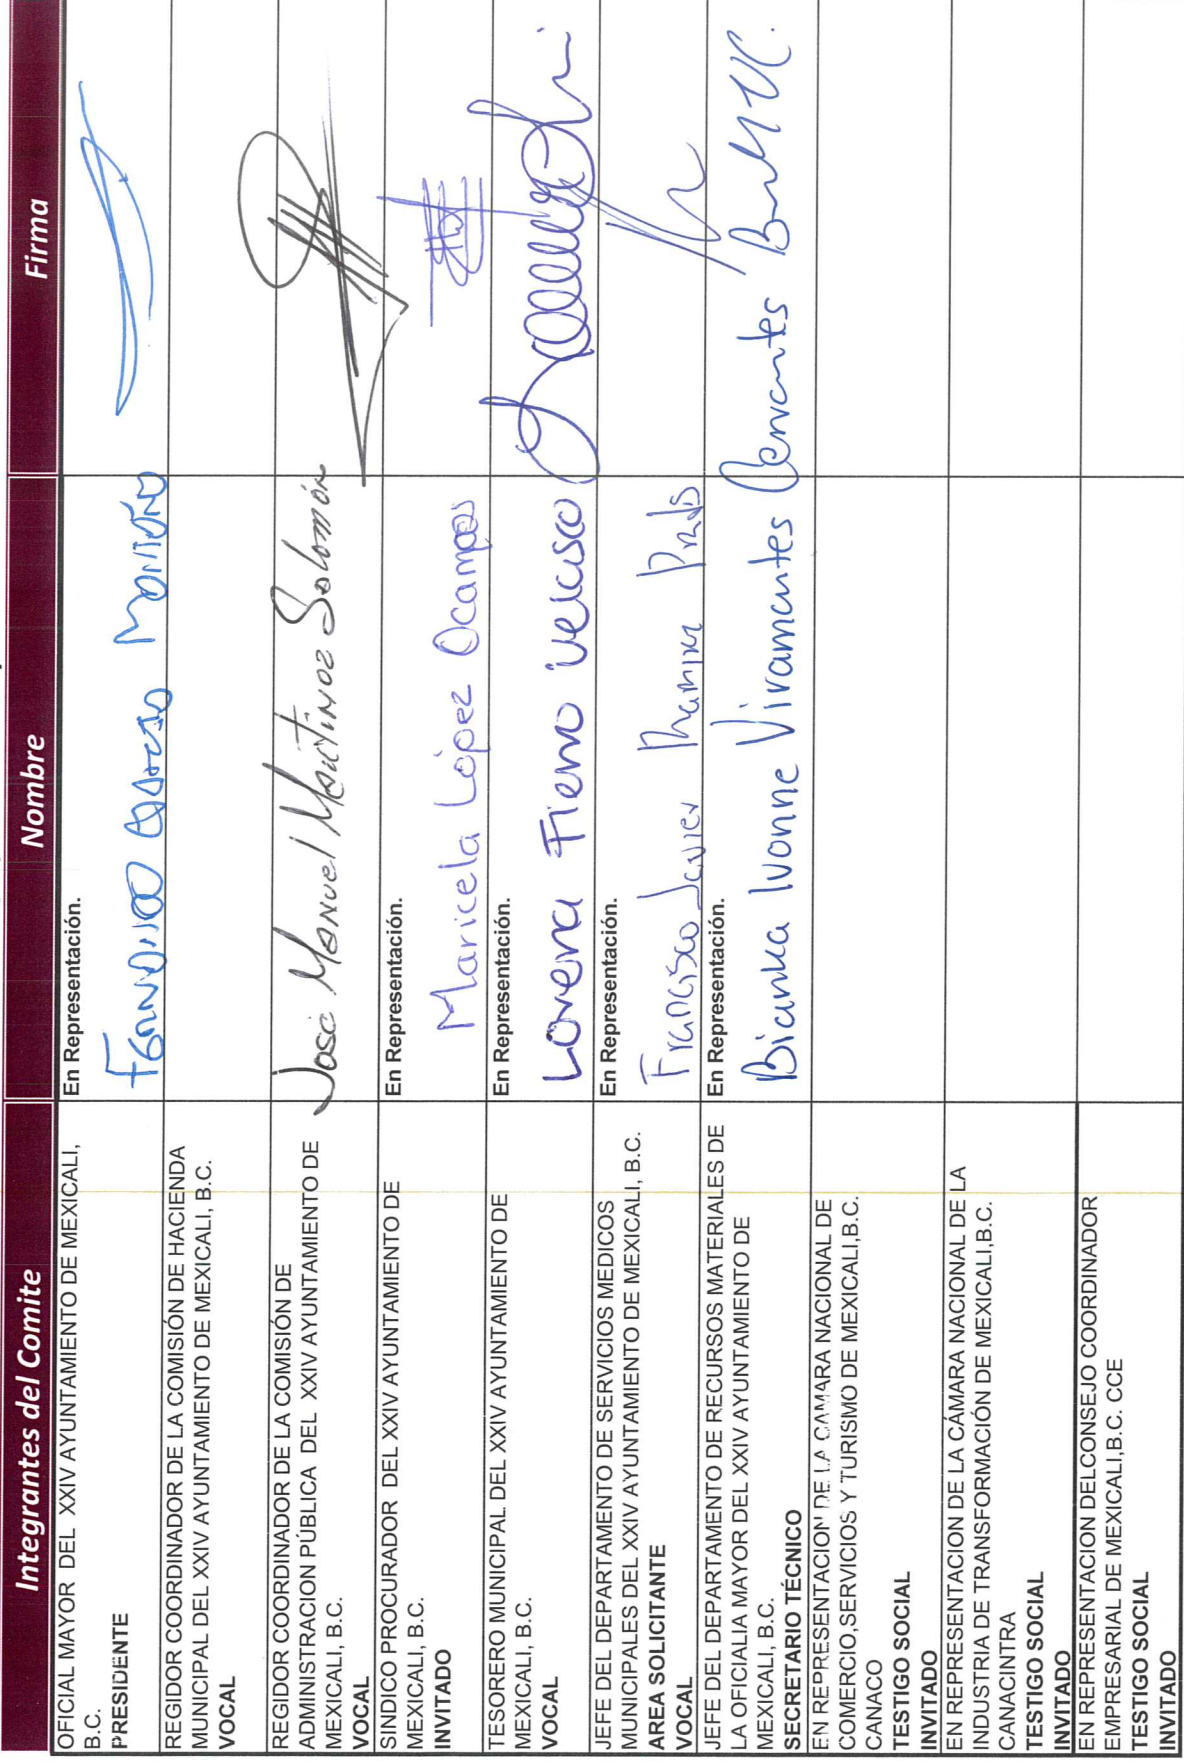 Integrantes del Comite
Nombre
Firma
OFICIAL MAYOR DEL XXIV AYUNTAMIENTO DE MEXICALI,
B.C.
PRESIDENTE
En Representación.
REGIDOR COORDINADOR DE LA COMISIÓN DE HACIENDA
MUNICIPAL DEL XXIV AYUNTAMIENTO DE MEXICALI, B.C.
VOCAL
REGIDOR COORDINADOR DE LA COMISIÓN DE
ADMINISTRACION PÚBLICA DEL XXIV AYUNTAMIENTO DE
MEXICALI, B.C.
VOCAL
José Manuel Martínez Salomón
SINDICO PROCURADOR DEL XXIV AYUNTAMIENTO DE
MEXICALI, B.C.
INVITADO
En Representación.
Maricela López Ocampo
TESORERO MUNICIPAL DEL XXIV AYUNTAMIENTO DE
MEXICALI, B.C.
VOCAL
En Representación.
Lorena Fierro Velasco
JEFE DEL DEPARTAMENTO DE SERVICIOS MEDICOS
MUNICIPALES DEL XXIV AYUNTAMIENTO DE MEXICALI, B.C.
AREA SOLICITANTE
VOCAL
En Representación.
Francisco Javier Ramirez Prado
JEFE DEL DEPARTAMENTO DE RECURSOS MATERIALES DE
LA OFICIALIA MAYOR DEL XXIV AYUNTAMIENTO DE
MEXICALI, B.C.
SECRETARIO TÉCNICO
En Representación.
Bianka Ivonne Viramontes Cervantes
EN REPRESENTACION DE LA CAMARA NACIONAL DE
COMERCIO,SERVICIOS Y TURISMO DE MEXICALI,B.C.
CANACO
TESTIGO SOCIAL
INVITADO
EN REPRESENTACION DE LA CÁMARA NACIONAL DE LA
INDUSTRIA DE TRANSFORMACIÓN DE MEXICALI,B.C.
CANACINTRA
TESTIGO SOCIAL
INVITADO
EN REPRESENTACION DELCONSEJO COORDINADOR
EMPRESARIAL DE MEXICALI,B.C. CCE
TESTIGO SOCIAL
INVITADO